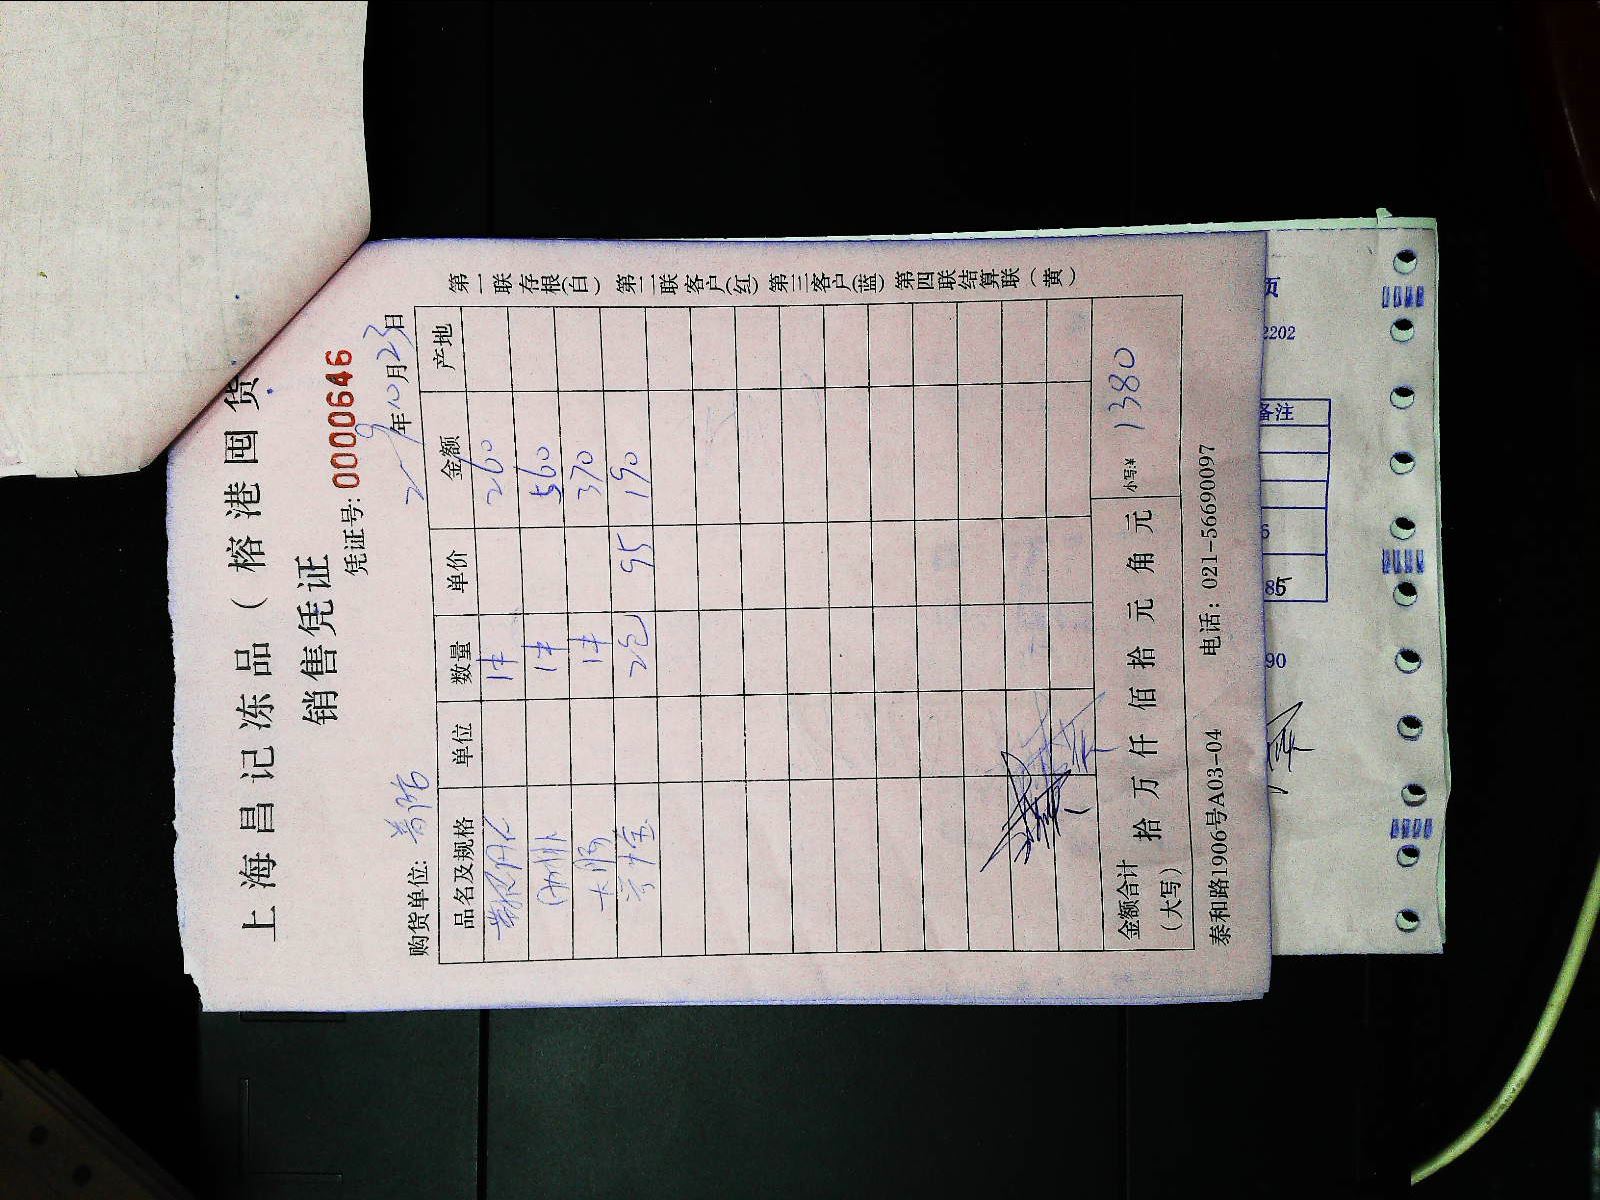 上海昌记冻品（榕港囤货
销售凭证
凭证号: 0000646
购货单位: 年10月23日
品名及规格 单位 数量 单价 金额 产地
1件 260
1件 560
大肠 1件 370
2包 95 190
金额合计（大写） 拾 万 仟 佰 拾 元 角 元 小写:¥ 1380
泰和路1906号A03-04 电话: 021-56690097
第一联存根(白) 第二联客户(红) 第三客户(蓝) 第四联结算联（黄）
页
2202
备注
85
90